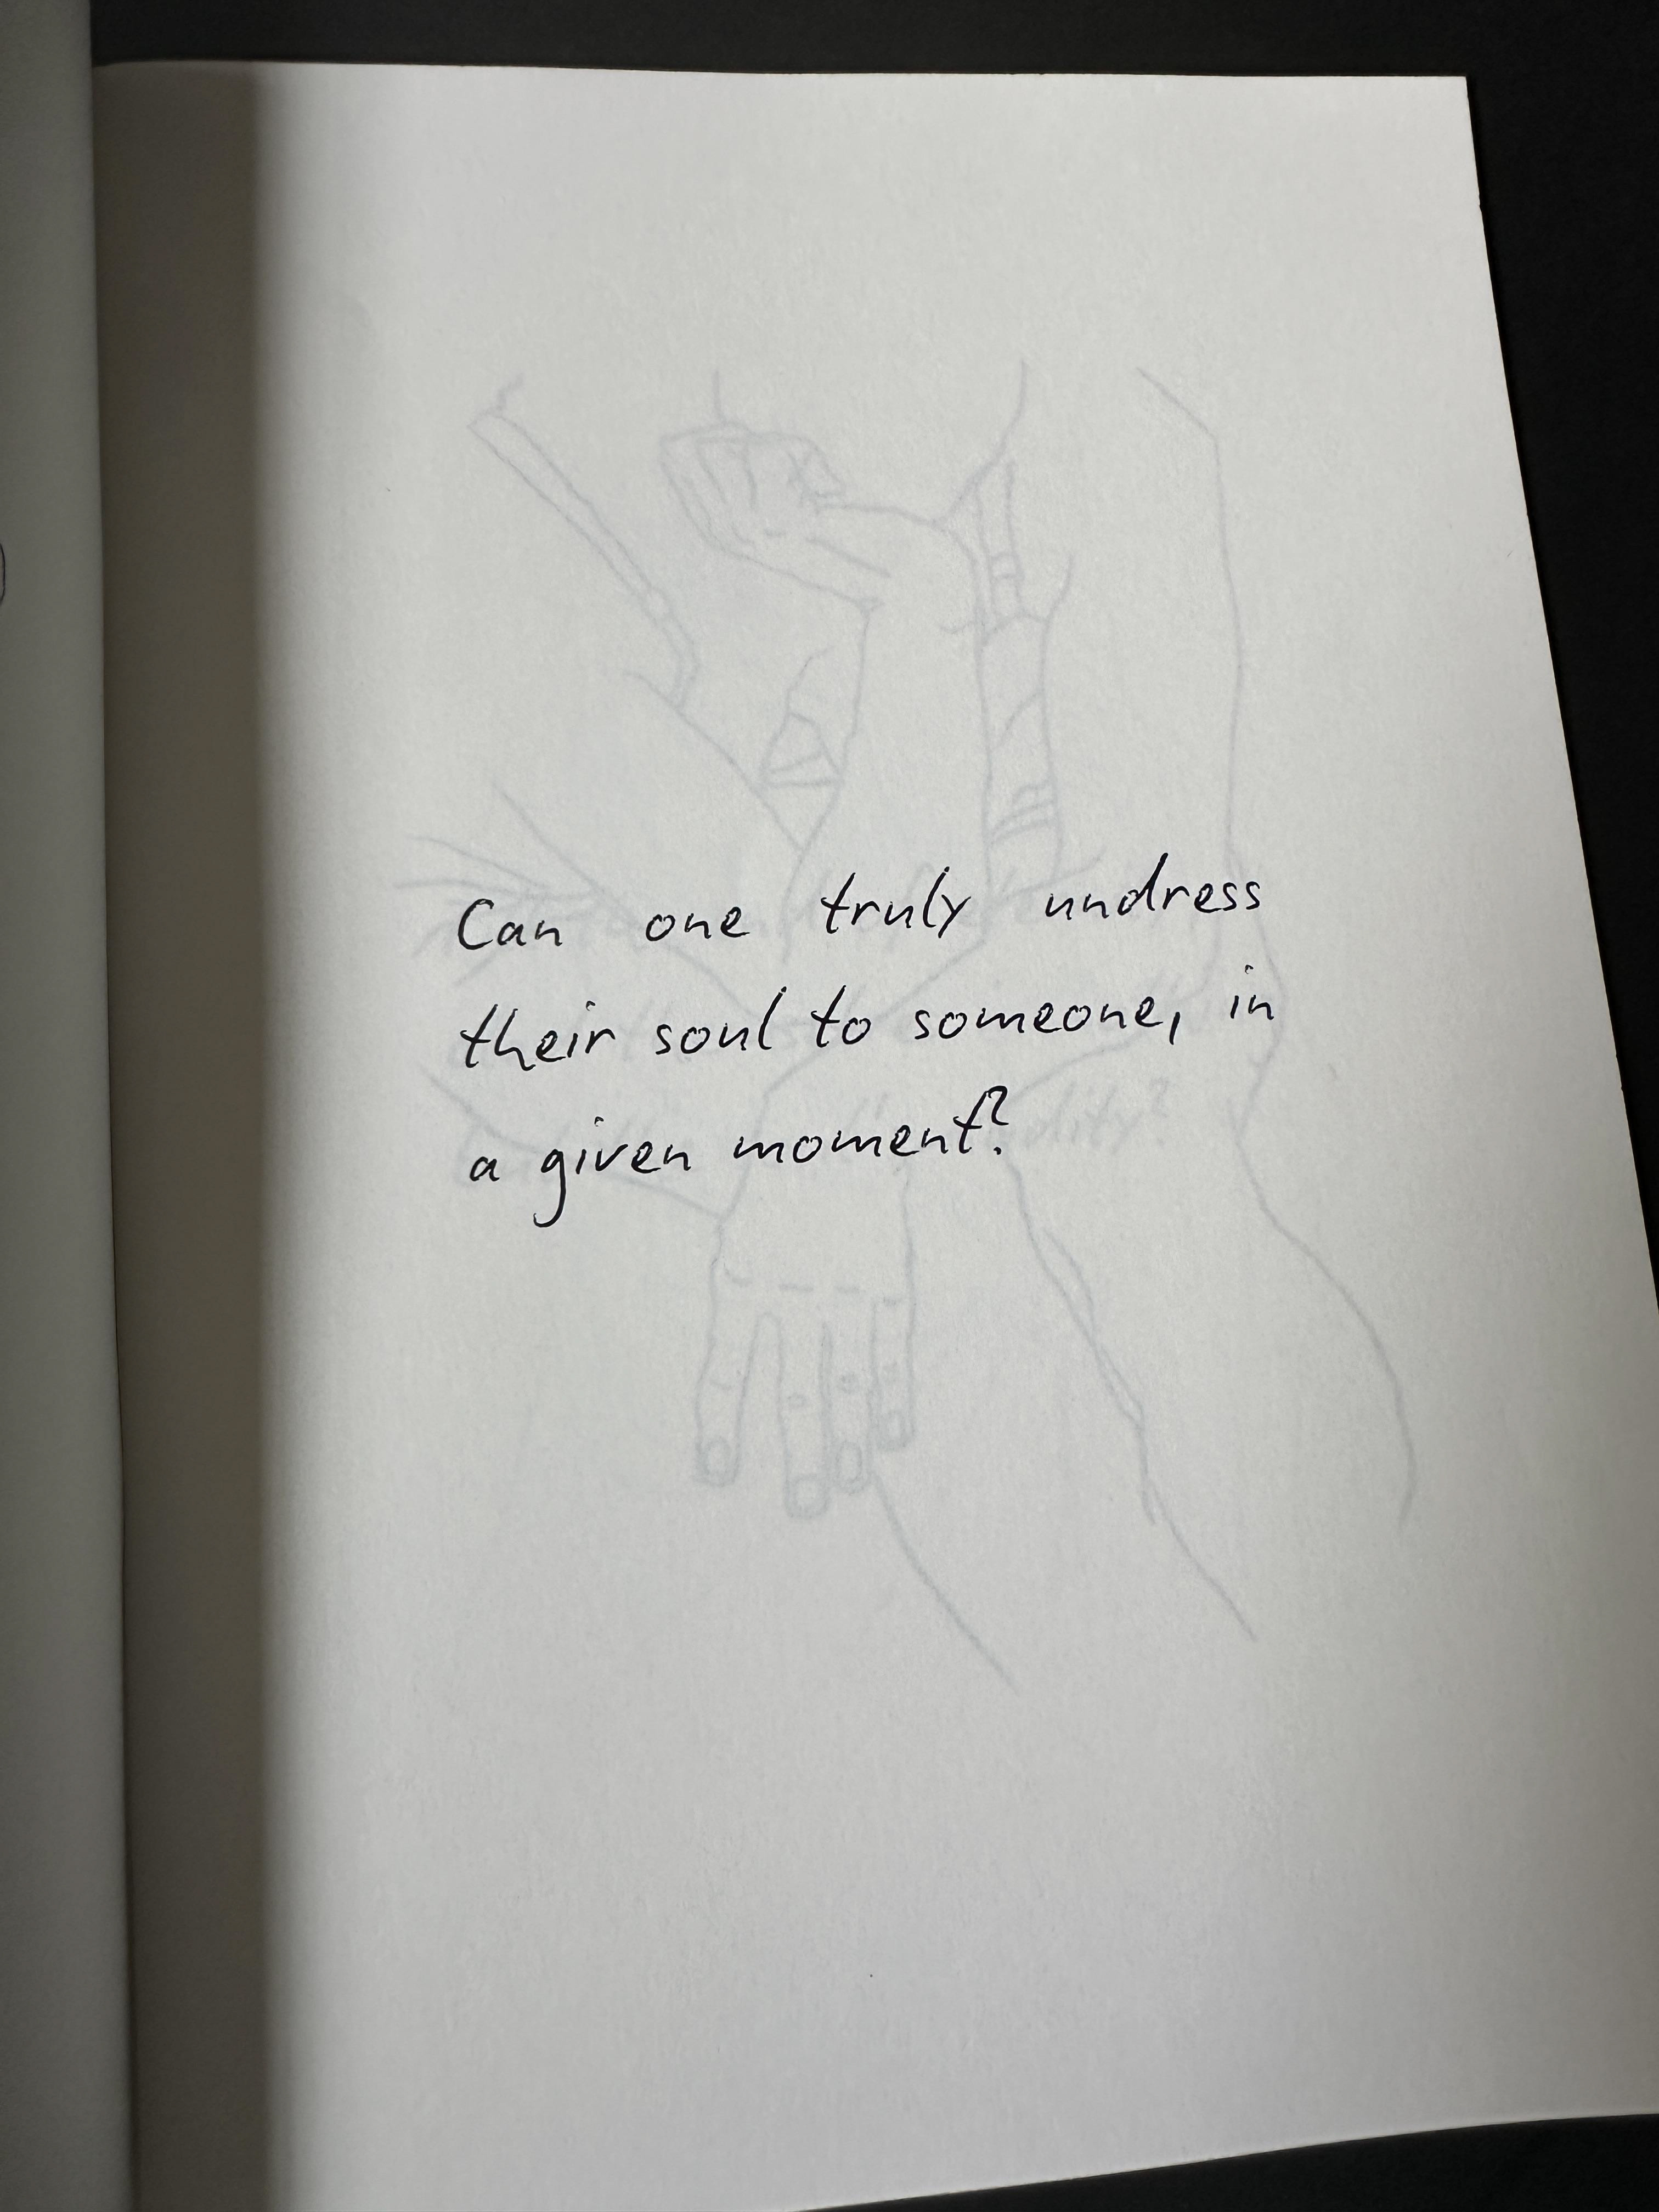 Can one truly undress
their soul to someone, in
a given moment?